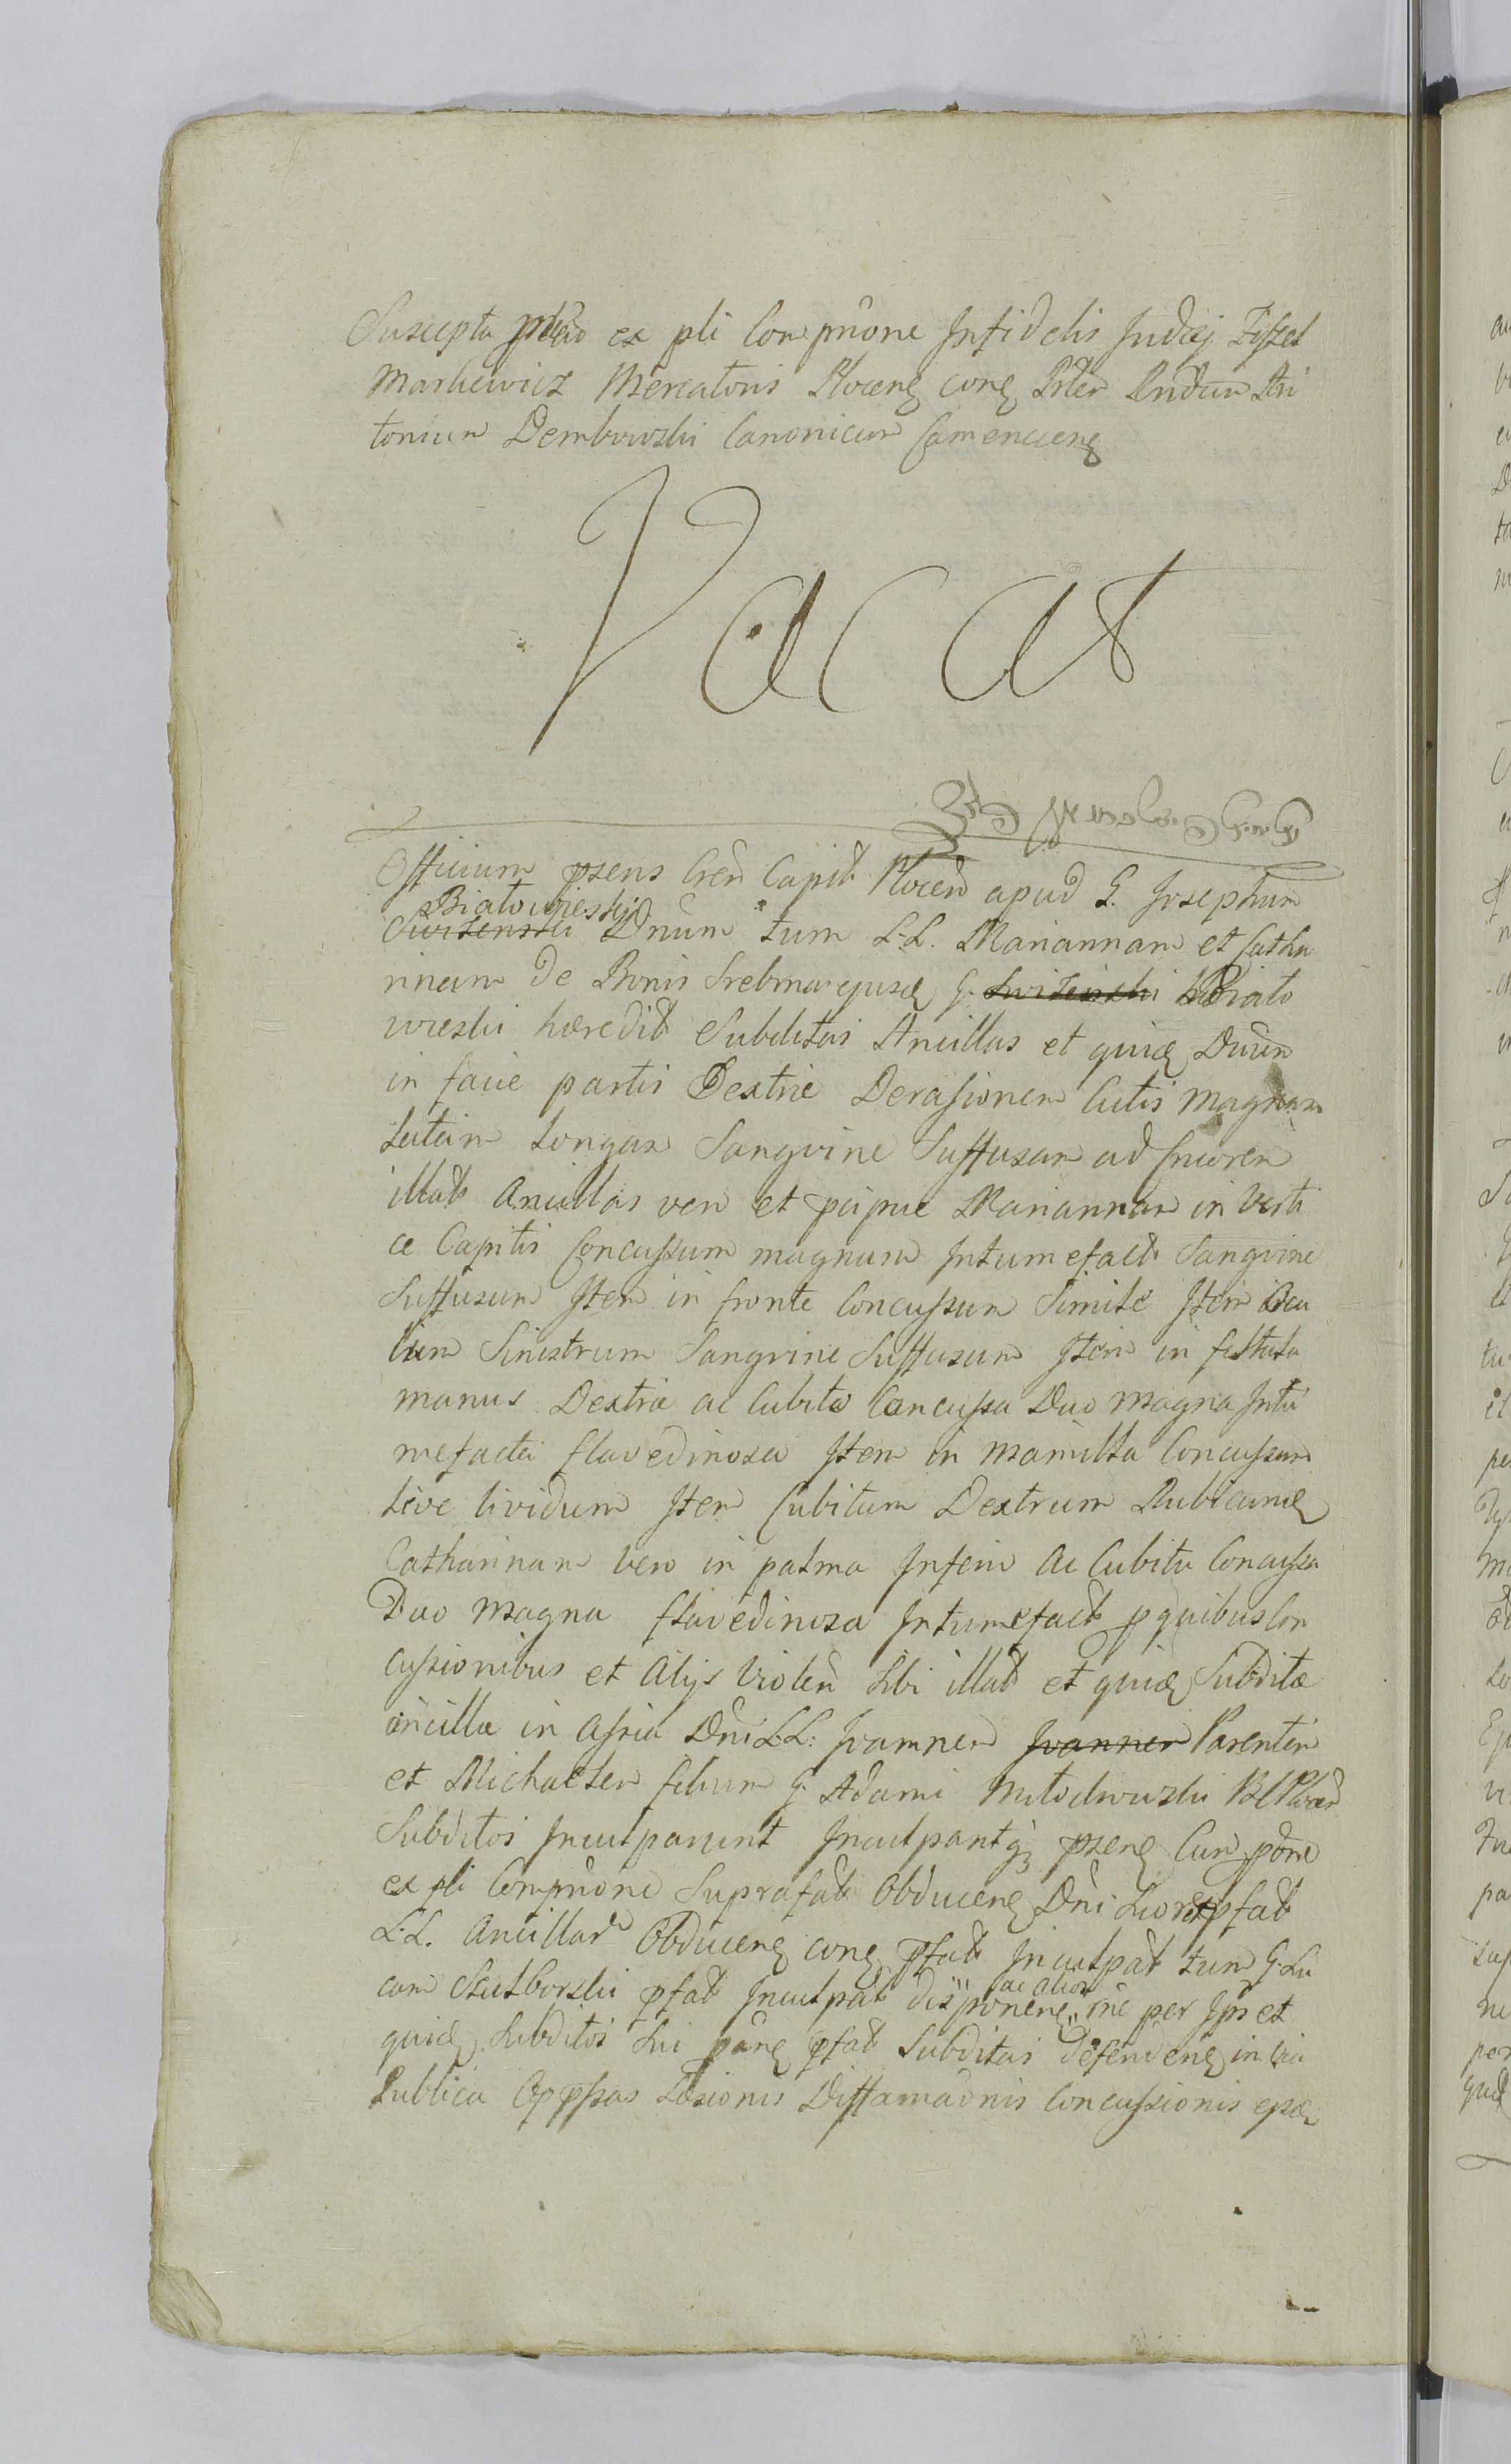 Suscepta ptio ex pli Comprione Infidelis Judej Fiszel
Markiewicz Mercatoris Plocen cong Prlem Rndum An
tonium Dembowski Canonicum Camenecen
Vacat
Officium psens Cren Capit Plocen apud G. Josephum
Białowieski
Swizenski Dnum tum L.L. Mariannam et Catha
rinam de Bonis Srebrna ejusd G. Swizenski Biało
wieski hæredit Subditas Ancillas et quid Dnum
in facie partis Dextræ Derasionem Cutis magnam
Latam Longam Sangvine Suffusam ad Cruorem
illat Ancillas vero et pcipue Mariannam in Verti
ce Capitis Concussum magnum Intumefact Sangvine
Suffusum Item in fronte Concussum Simile Item Ocu
lum Sinistrum Sangvine Suffusum Item in fistula
manus Dextræ ac Cubito Concussa Duo magna Intu
mefacta flavedinosa Item in mamilla Concussum
Leve lividum Item Cubitum Dextrum Rubicund
Catharinam vero in palma Inferi ac Cubito Concussa
Duo magna flavedinosa Intumefact p quibus Con
cussionibus et Alijs Violen Sibi illat et quid Subditæ
ancillæ in Asria Dni L.L: Joannem Joannem Parentem
et Michaelem filium G. Adami Młochowski Plocen
Subditos Inculparunt Inculpantq psens Cum
ex pli Comprione Suprafat Obducen Dni pfat
L.L. Ancillar Obducen cong pfat Inculpat tum G. Lu
cam Stutborski pfat Inculpat disponen ac alior me per Ips et
quid Subditos Sui pfat Subditas defenden in via
Publica Oppssas Læsionis Diffamaonis Concussionis